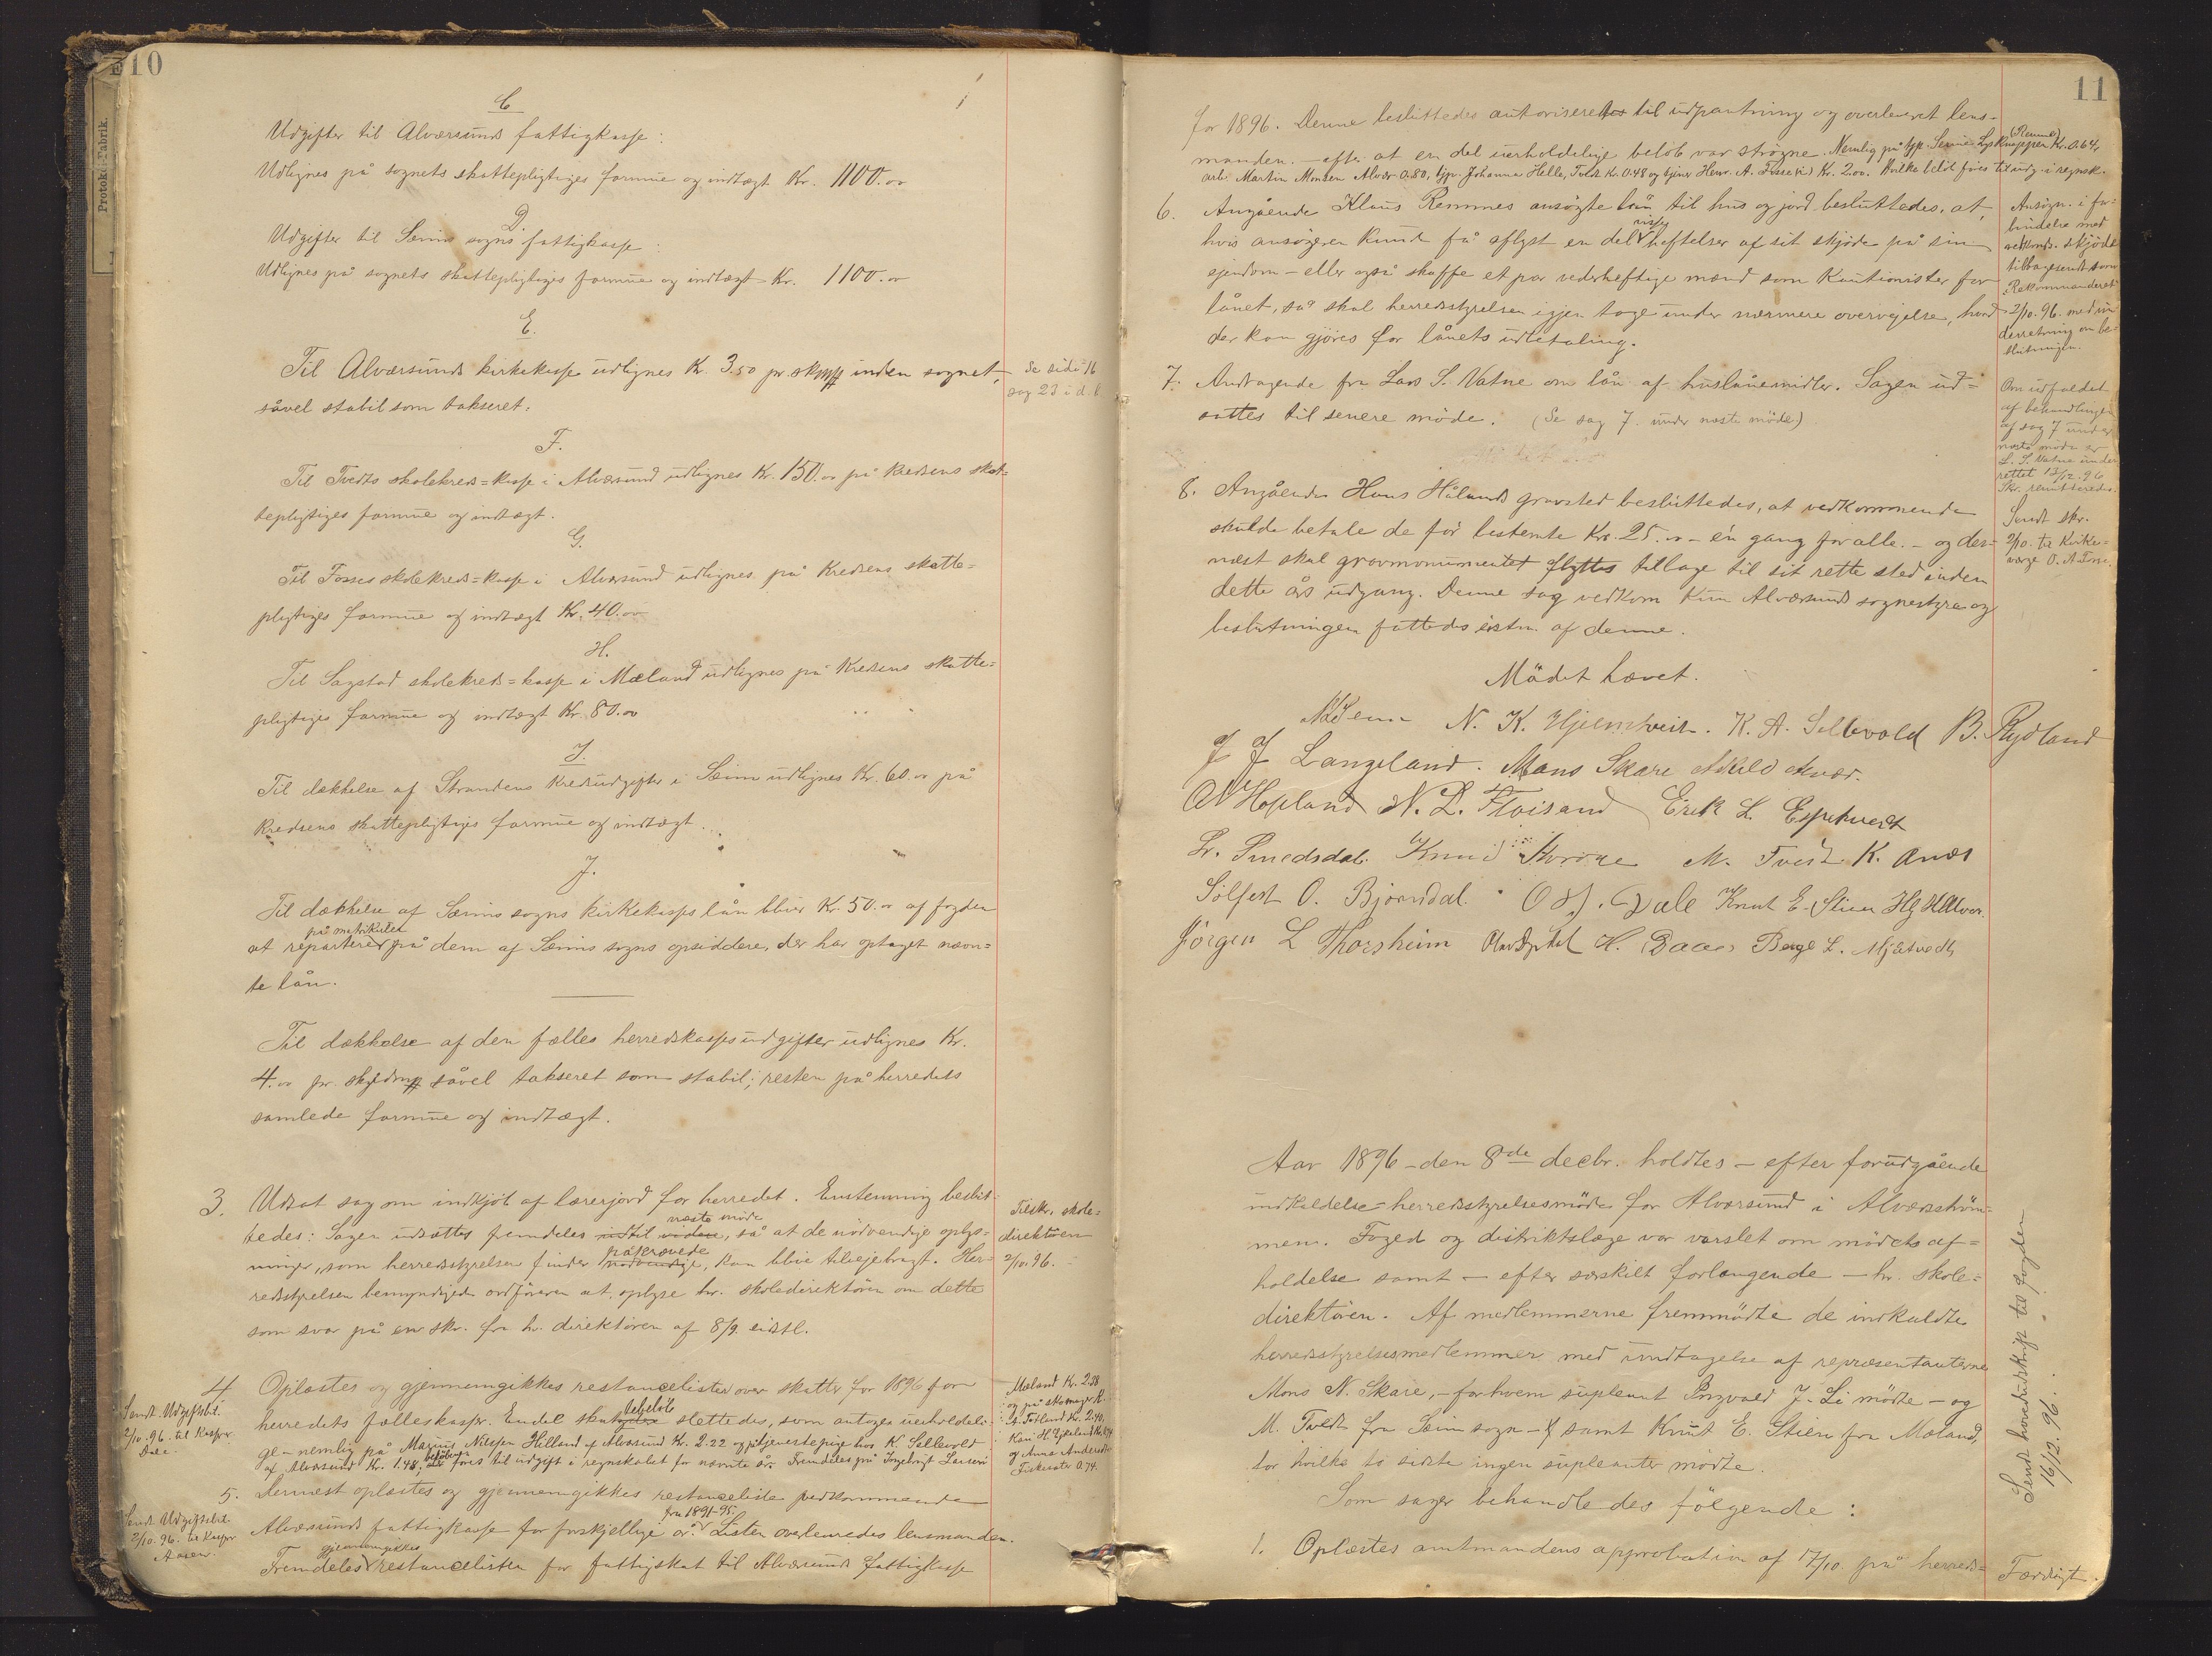 10
C
Udgifter til Alværsunds fattigkasse:
Udlignes på sognets skattepligtiges formue og indtægt Kr. 1100.00
D.
Udgifter til Sæims sogns fattigkasse:
Udlignes på sognets skattepligtiges formue og indtægt Kr. 1100.00
E.
Til Alværsunds kirkekasse udlignes Kr. 3.50 pr. skmp inden sognet,
såvel stabil som takseret.
Se side 16
sag 23 i d. b
F.
Til Tvedts skolekreds=kasse i Alværsund udlignes Kr. 150.00 på kredsens skat=
tepligtiges formue og indtægt.
G.
Til Fosses skolekreds=kasse i Alværsund udlignes på kredsens skatte=
pligtiges formue og indtægt Kr. 40.00
H.
Til Sagstad skolekreds=kasse i Mæland udlignes på kredsens skatte=
pligtiges formue og indtægt Kr. 80.00
I.
Til dækkelse af Strandens kredsudgifter i Sæim udlignes Kr. 60.00 på
kredsens skattepligtiges formue og indtægt.
J.
Til dækkelse af Sæims sogns kirkekasses lån blive Kr. 50.00 af fogden
på matrikulen
at repartere på dem af Sæims sogns opsiddere, der har optaget nævn=
te lån.
Til dækkelse af den fælles herredskasses udgifter udlignes Kr.
4.00 pr. skyldmp såvel takseret som stabil; resten på herredets
samlede formue og indtægt.
3. Udsat sag om indkjöb af lærerjord for herredet. Enstemmig beslut-
næste möde
tedes: Sagen udsættes fremdeles indtil videre, så at de nödvendige oplys=
påkrævede
ninger, som herredsstyrelsen finder nödvendige, kan blive tilvejebragt. Her=
redsstyrelsen bemyndiged ordföreren at oplyse hr. skoledirektören om dette
som svar på en skr. fra hr. direktören af 8/9 eistl.
Tilskr. skole=
direktören
2/10. 96.
4 Oplæstes og gjennemgikkes restancelister over skatter for 1896 for
beløb
herredets fælleskasse. Endel skatydere slettedes, som antoges uerholdeli=
ge - nemlig på Magnus Nilssen Hilland af Alværsund Kr. 2.22 og på tjenestepige hos K. Sellevold
af Alværsund Kr. 1.48, føres til udgift i regnskabet for nævnte år. Fremdeles på Ingebrigt Larsen
Sendt Udgiftsbil.
2/10. 96. til kasser.
Dale.
Mæland Kr. 2.38
og på skomager
Kr. 2.40,
og Anna
Fiskesæter 0.74.
5. Dernæst oplæstes og gjennemgikkes restanceliste vedkommende
fra 1891-95.
Alværsunds fattigkasse for forskjellige år. Listen overleveredes lensmanden.
gjennemgikkes
Fremdeles restancelisten for fattigskat til Alværsunds fattigkasse
Sendt Udgiftsbil.
2/10. 96. til kasser
Aasen.
11
for 1896. Denne besluttedes autoriseret til udpantning og overleveret lens-
manden. - efter at en del uerholdelige belöb var strögne. Nemlig på tjp. Serine Lysknappen (Remme) Kr. 0.64,
arb. Martin Monsen Alvær 0.80, tjp. Johanna Helle, Tvedt Kr. 0.48 og tjener Henr. A. Fosse Kr. 2.00. Hvilke belöb föres til udg. i regnsk.
6. Angående Klaus Remmes ansögte lån til hus og jord besluttedes, at,
visse
hvis ansögeren kunde få aflyst en del heftelser af sit skjöde på sin
ejendom - eller også skaffe et par vederheftige mænd som kautionister for
lånet, så skal herredsstyrelsen igjen tage under nærmere overvejelse, hvad
der kan gjöres for lånets udbetaling.
Ansögn. i for=
bindelse med
vedkomds. skjöde
tilbagesendt som
"Rekommanderet"
2/10. 96. med un=
derretning om be=
slutningen.
7. Andragende fra Lars S. Vatne om lån af huslånemidler. Sagen ud=
sattes til senere möde. (Se sag 7. under næste möde)
Om udfaldet
af behandlingen
af sag 7 under
næste möde er
L. S. Vatne under
rettet 12/12. 96
Skr. remitteredes.
8. Angående Hans Hålands gravsted besluttedes, at vedkommende
skulde betale de för bestemte Kr. 25.00 - én gang for alle. - og der=
næst skal gravmonumentet flyttes tilbage til sit rette sted inden
dette års udgang. Denne sag vedkom kun Alværsunds sognestyre og
beslutningen fattedes af denne.
Sendt skr.
2/10. til kirke=
værge O. A. Fosse.
Mödet hævet.
N. K. Hjelmtveit. K. A. Sellevold B. Rydland
J J Langeland. Mons Skare Askild Alvær.
A N Hopland N. L. Floisand Erik L. Espetvedt
Lr. Smedsdal. Knud M. Tvedt K. Anæs
Sölfest O. Bjørndal. O J. Dale Knut E. Stien
Jörgen L Thorsheim H. Daae Berge L. Mjåtvedt
Aar 1896 - den 8de decbr. holdtes - efter forudgående
indkaldelse - herredsstyrelsesmöde for Alværsund i Alværström=
men. Foged og distriktslæge var varslet om mödets af=
holdelse samt - efter særskilt forlangende - hr. skole=
direktören. Af medlemmerne fremmödte de indkaldte
herredsstyrelsesmedlemmer med undtagelse af repræsentanterne
Mons N. Skare, - for hvem supleant Ingvald J. Li mödte - og
M. Tvedt fra Sæim sogn - samt Knut E. Stien fra Mæland,
for hvilke to sidste ingen supleanter mödte.
Som sager behandledes fölgende:
1. Oplæstes amtmandens approbation af 17/10. på herreds=
Færdigt.
Sendt hovedudskrift til fogden
16/12. 96.
Protok.-Fabrik.